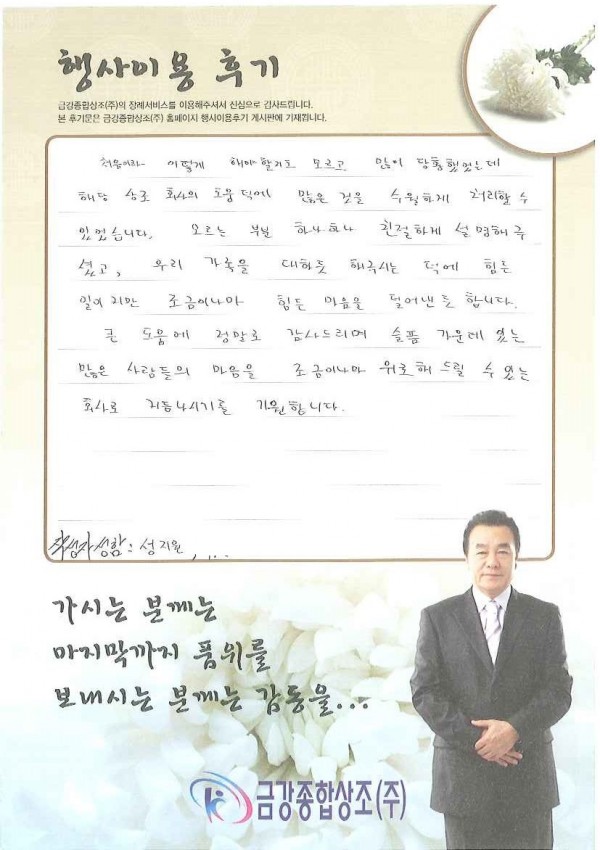 행사이용 후기
금강종합상조(주)의 장례서비스를 이용해주셔서 진심으로 감사드립니다.
본 후기문은 금강종합상조(주) 홈페이지 행사이용후기 게시판에 기재됩니다.
처음이라 어떻게 해야 할지도 모르고 많이 당황했었는데
해당 상조 회사의 도움 덕에 많은 것을 수월하게 처리할 수
있었습니다. 모르는 부분 하나하나 친절하게 설명해 주
셨고, 우리 가족을 대하듯 해주시는 덕에 힘든
일이지만 조금이나마 힘든 마음을 덜어낸듯 합니다.
큰 도움에 정말로 감사드리며 슬픔 가운데 있는
많은 사람들의 마음을 조금이나마 위로해 드릴 수 있는
회사로 거듭나시기를 기원합니다.
작성자성함 : 성지원
가시는 분께는
마지막까지 품위를
보내시는 분께는 감동을...
금강종합상조(주)